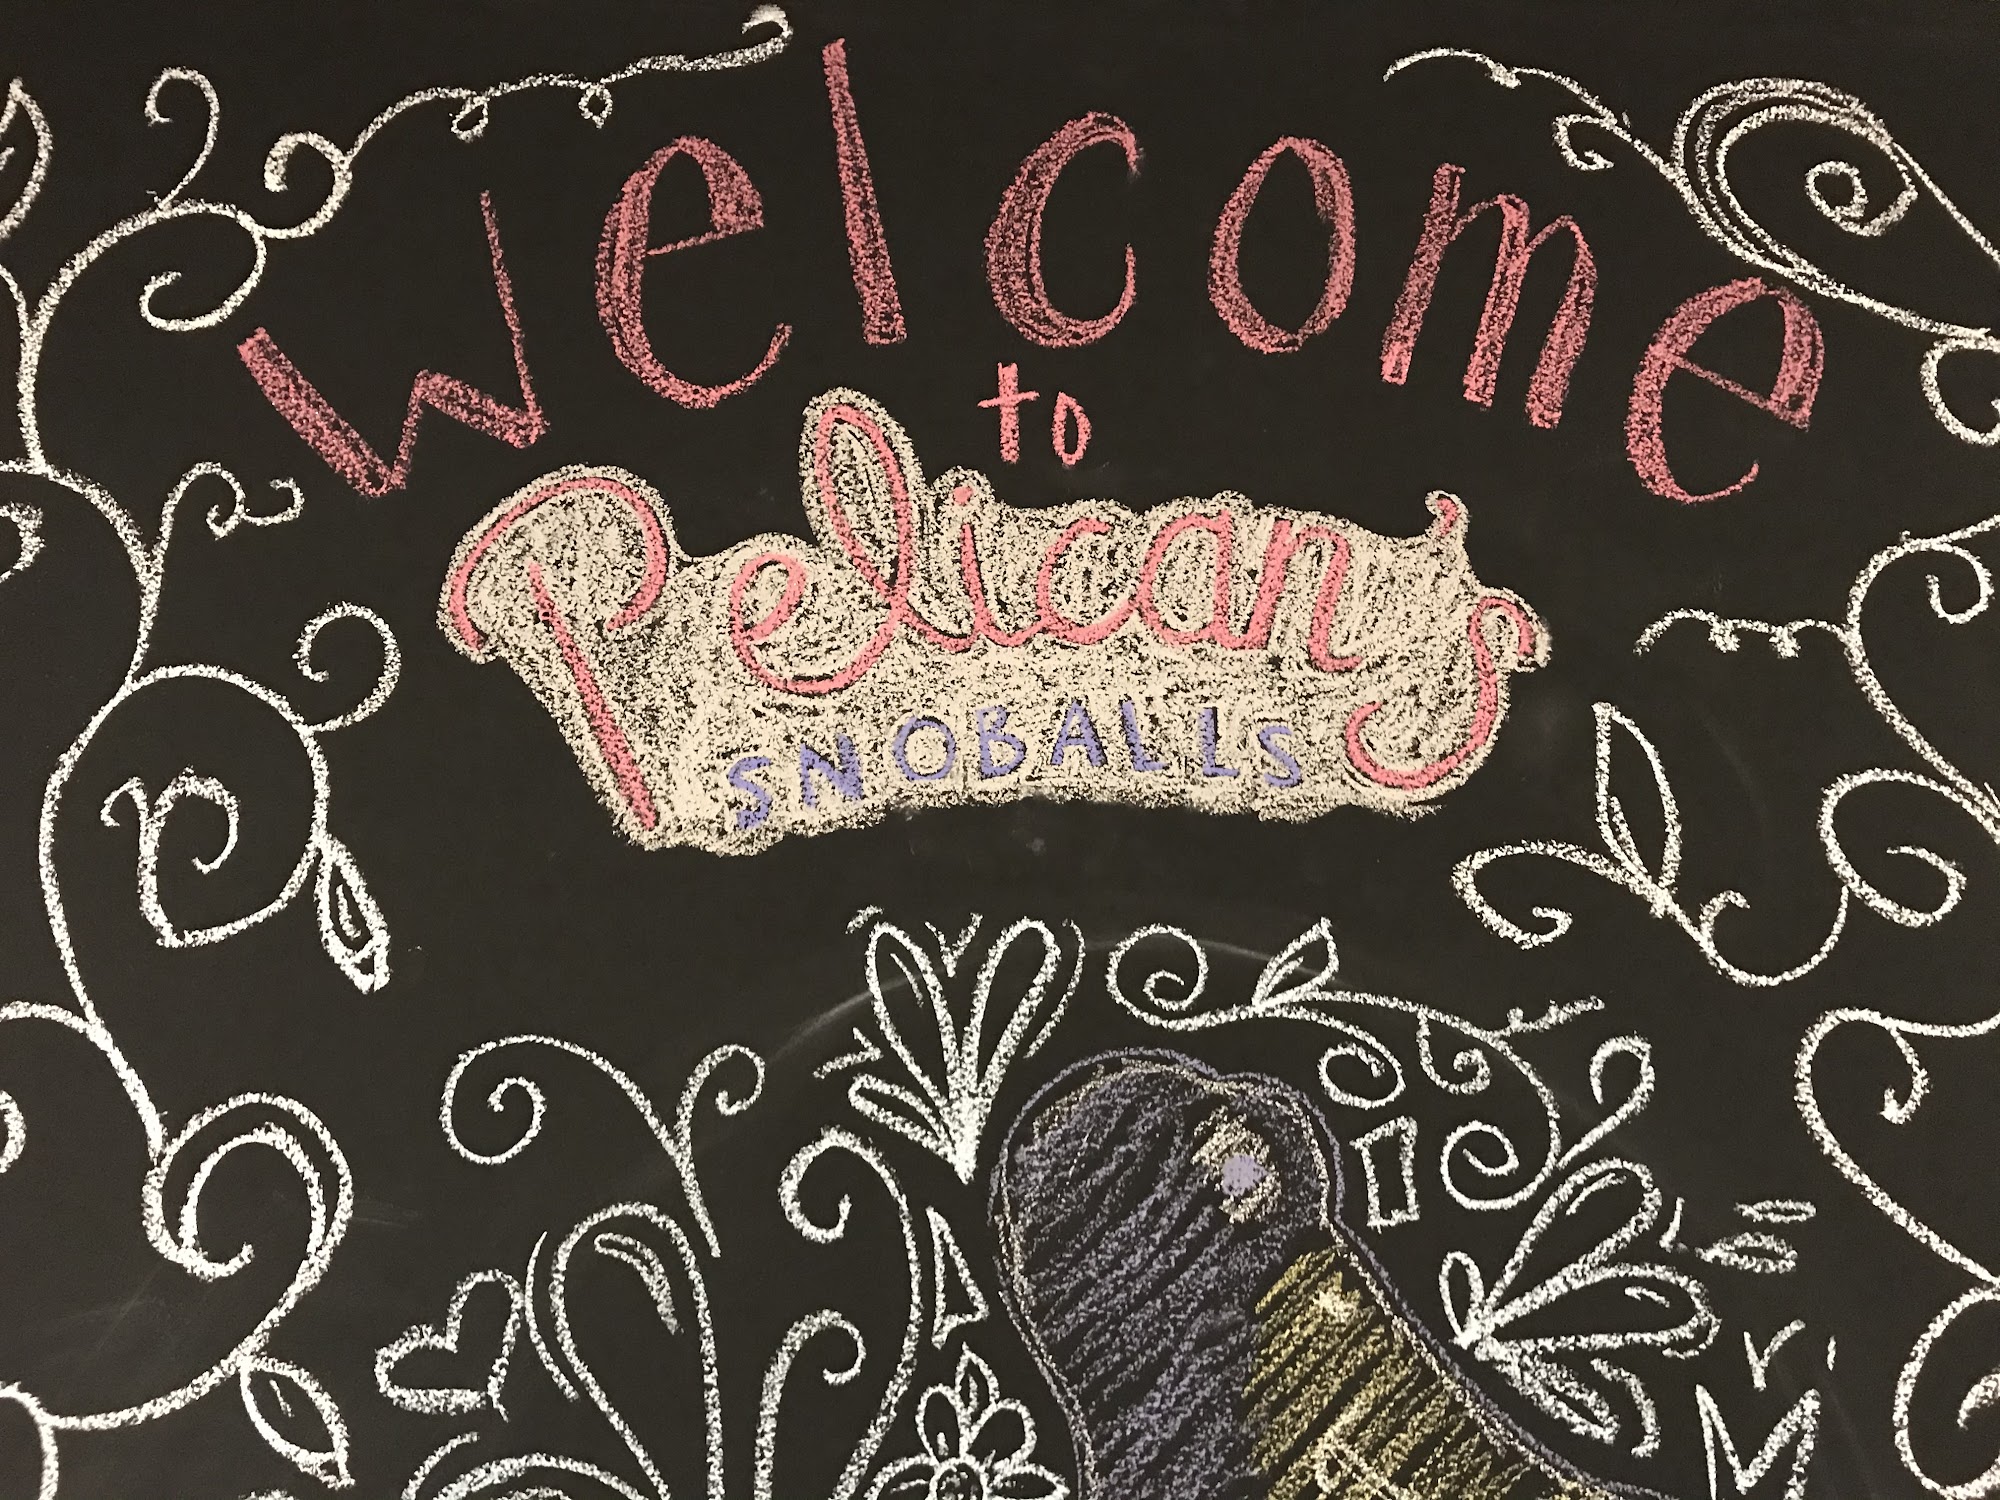 welcome
to
Pelican's
SNOBALLS